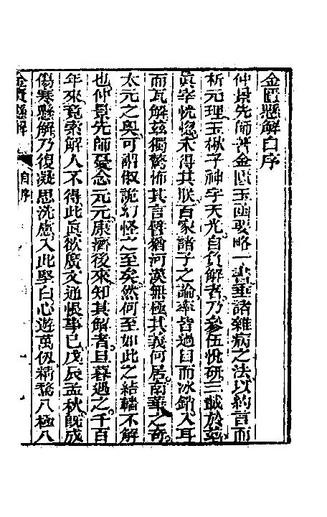 金匱懸解自序
仲景先師著金匱玉函要略一書垂諸雜病之法以約言而
析元理玉楸子神宇天光自負解者乃參伍悅研三載於茲
真宰恍惚未得其朕百家諸子之論率皆過目而冰銷入耳
而瓦解茲獨驚怖其言猶河漢無極其義何居南華之奇
太元之奧可謂俶詭幻怪之至矣然何至如此之結轖不解
也仲景先師憂念元元康濟後來知其解者旦暮遇之千百
年來竟索解人不得此真欲廣文通悵事已戊辰孟秋既成
傷寒懸解乃復凝思洗慮入此堅白心遊萬仞精騖八極八
金匱懸解
自序